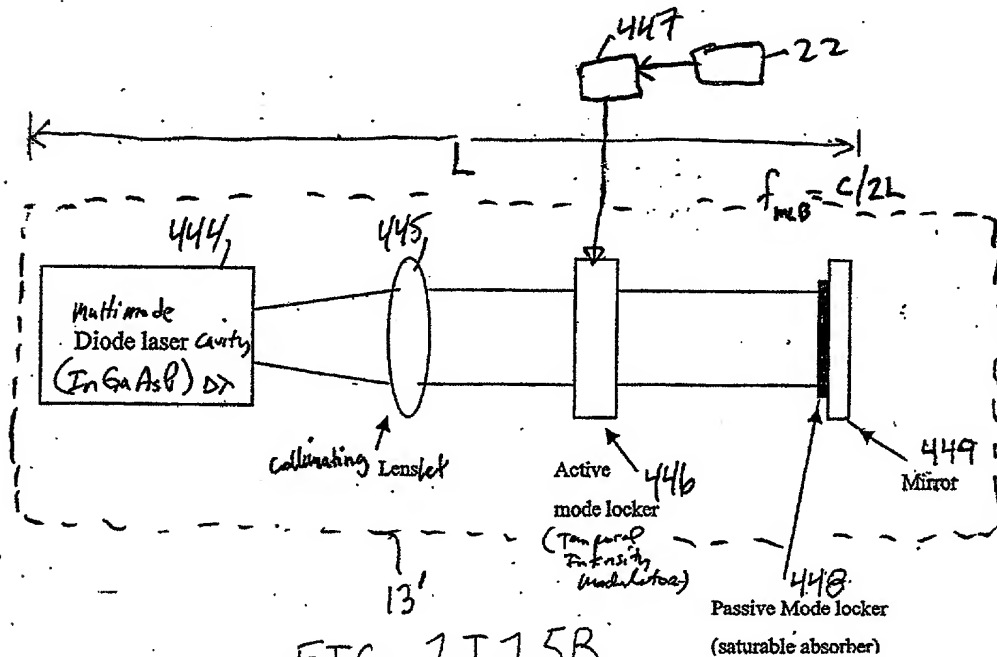 447
22
L
f_MLB = C/2L
444
445
Multimode
Diode laser cavity
(InGaAsP) Δλ
Collimating Lenslet
Active
mode locker
446
(Temporal
Intensity
Modulator)
449
Mirror
13'
448
Passive Mode locker
(saturable absorber)
FIG. 1I15B